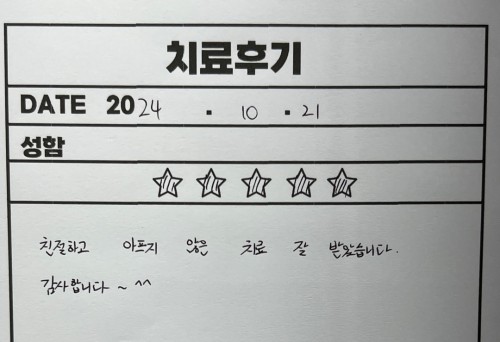 치료후기
DATE 2024 . 10 . 21
성함
친절하고 아프지 않은 치료 잘 받았습니다.
감사합니다 ~ ^^